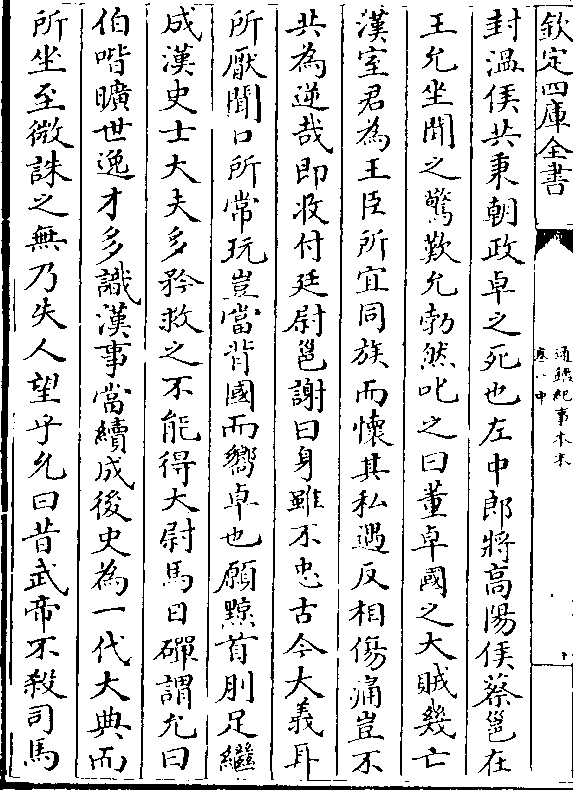 欽定四庫全書
通鑑紀事本末
卷八中
封溫侯共秉朝政卓之死也左中郎將高陽侯蔡邕在
王允坐聞之驚歎允勃然叱之曰董卓國之大賊幾亡
漢室君為王臣所宜同族而懷其私遇反相傷痛豈不
共為逆哉即收付廷尉邕謝曰身雖不忠古今大義耳
所厭聞口所常玩豈當背國而嚮卓也願黥首刖足繼
成漢史士大夫多矜救之不能得大尉馬日磾謂允曰
伯喈曠世逸才多識漢事當續成後史為一代大典而
所坐至微誅之無乃失人望乎允曰昔武帝不殺司馬